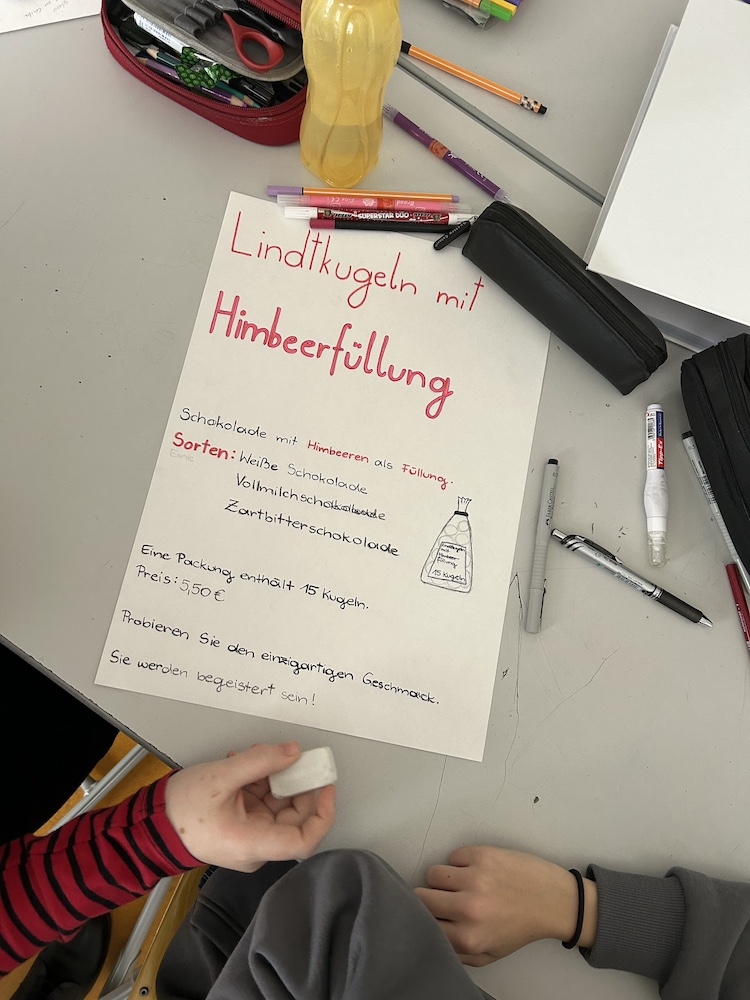 Lindtkugeln mit
Himbeerfüllung
Schokolade mit Himbeeren als Füllung.
Sorten: Weiße Schokolade
Vollmilchschokolade
Zartbitterschokolade
15 Kugeln
Eine Packung enthält 15 Kugeln.
Preis: 5,50 €
Probieren Sie den einzigartigen Geschmack.
Sie werden begeistert sein!
SUPERSTAR DUO
Tipp-Ex